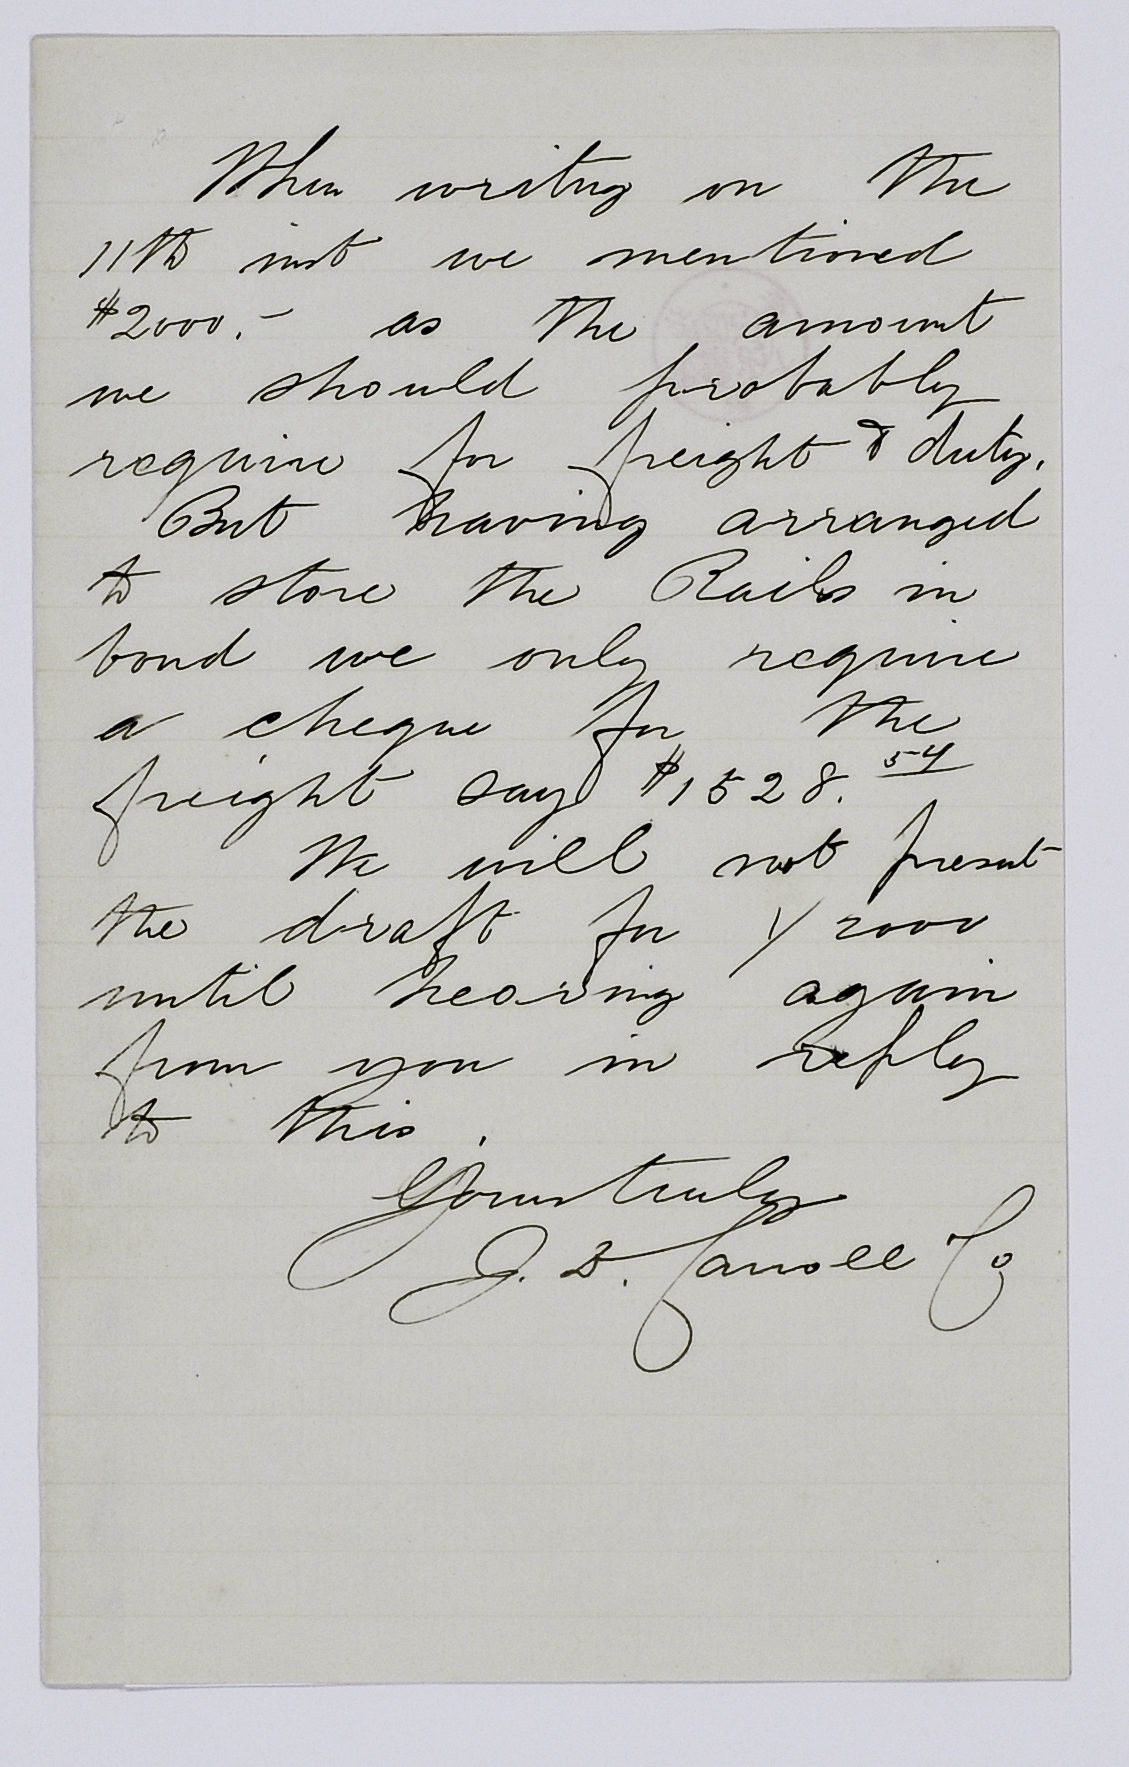 When writing on the
11th inst we mentioned
$2000.- as the amount
we should probably
require for freight & duty.
But having arranged
to store the Rails in
bond we only require
a cheque for the
freight say $1528.54
We will not present
the draft for $2000
until hearing again
from you in reply
to this.
Yours truly
J. D. Carroll Co